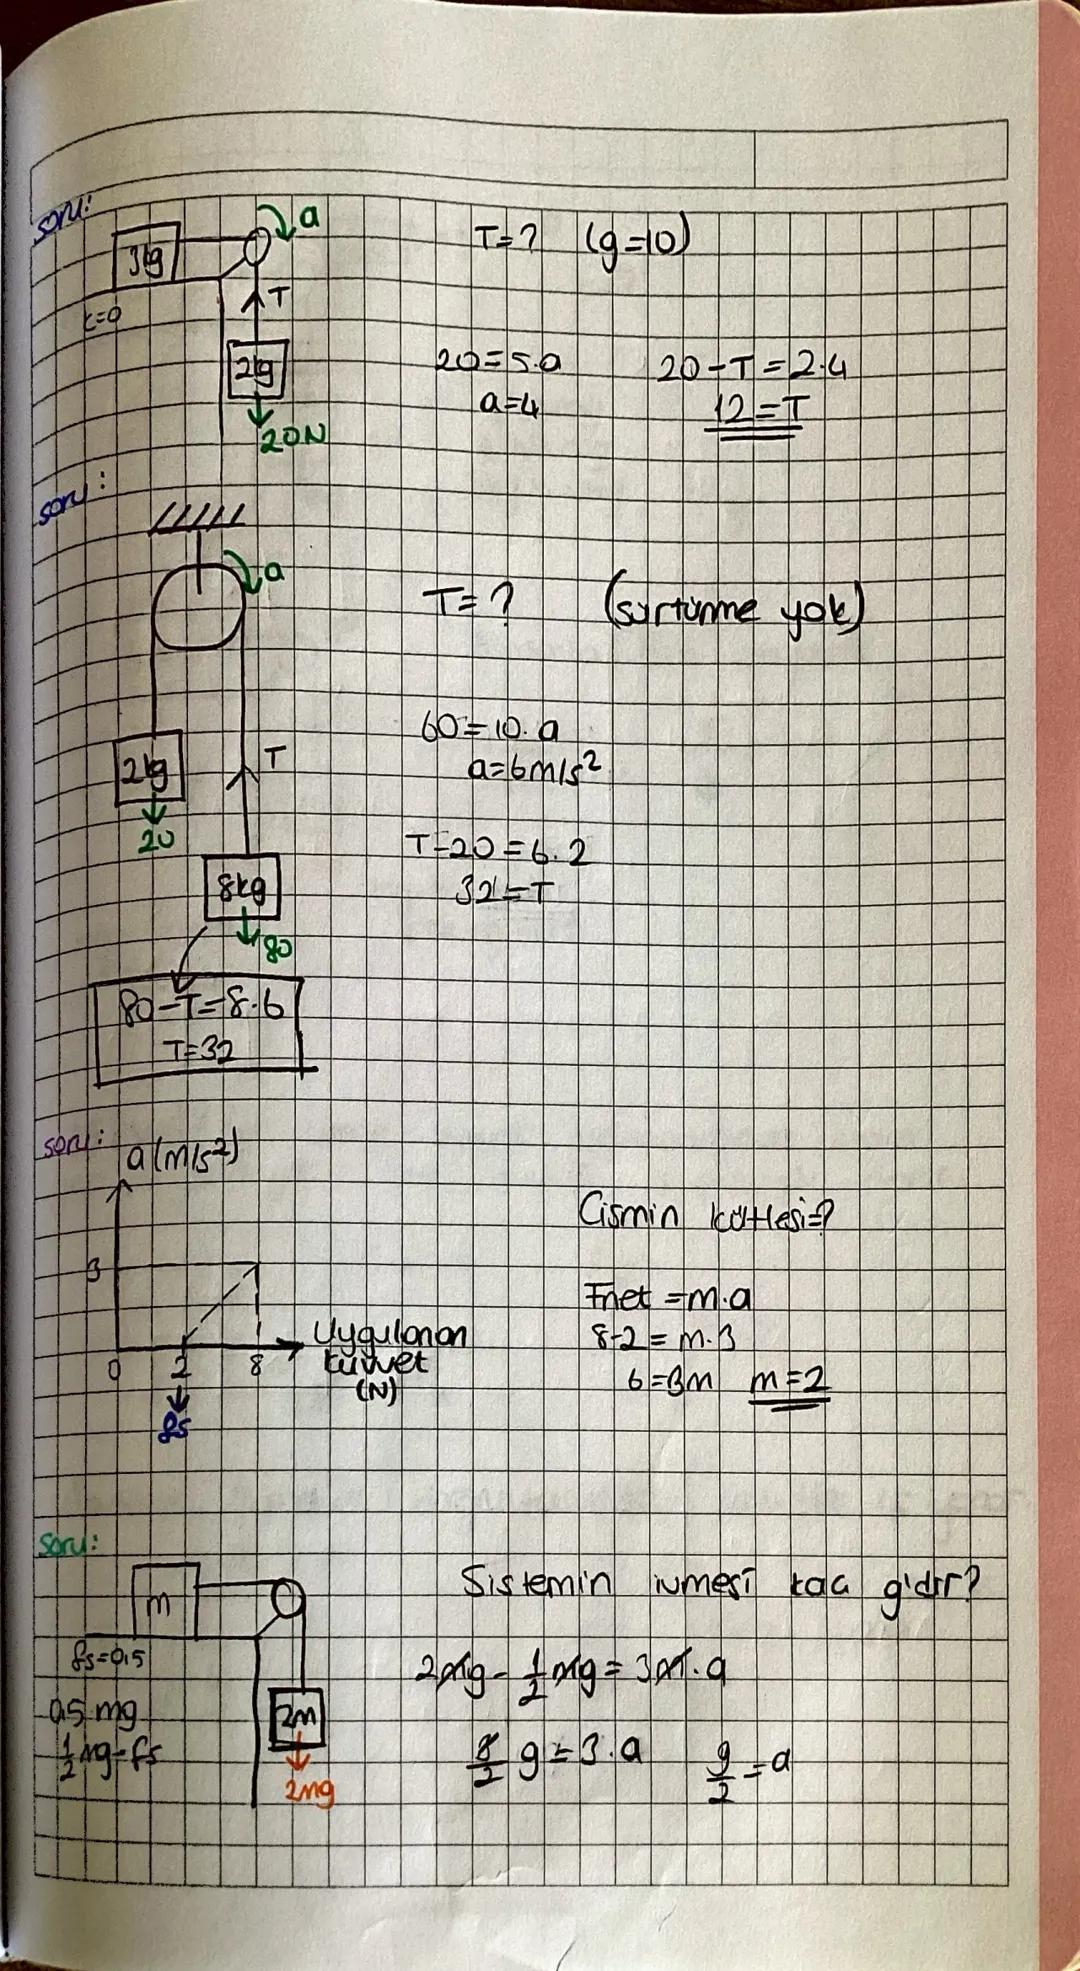 soru:
a
3kg
T=? (g=10)
k=0
T
2kg
20=5.a
20-T=2.4
a=4
12=T
20N
soru:
a
T=? (sürtünme yok)
60=10.a
a=6m/s²
2kg
T
20
T-20=6.2
32=T
8kg
80
80-T=8.6
T=32
soru:
a(m/s²)
Cismin kütlesi=?
3
Fnet =m.a
8-2=m.3
6=3m m=2
0 2 8
Uygulanan
kuvvet
(N)
fs
soru:
m
Sistemin ivmesi kaç g'dir?
fs=0,5
2mg-½mg=3m.a
0,5 mg
2m
½mg=fs
3/2 g=3.a
g/2=a
2mg